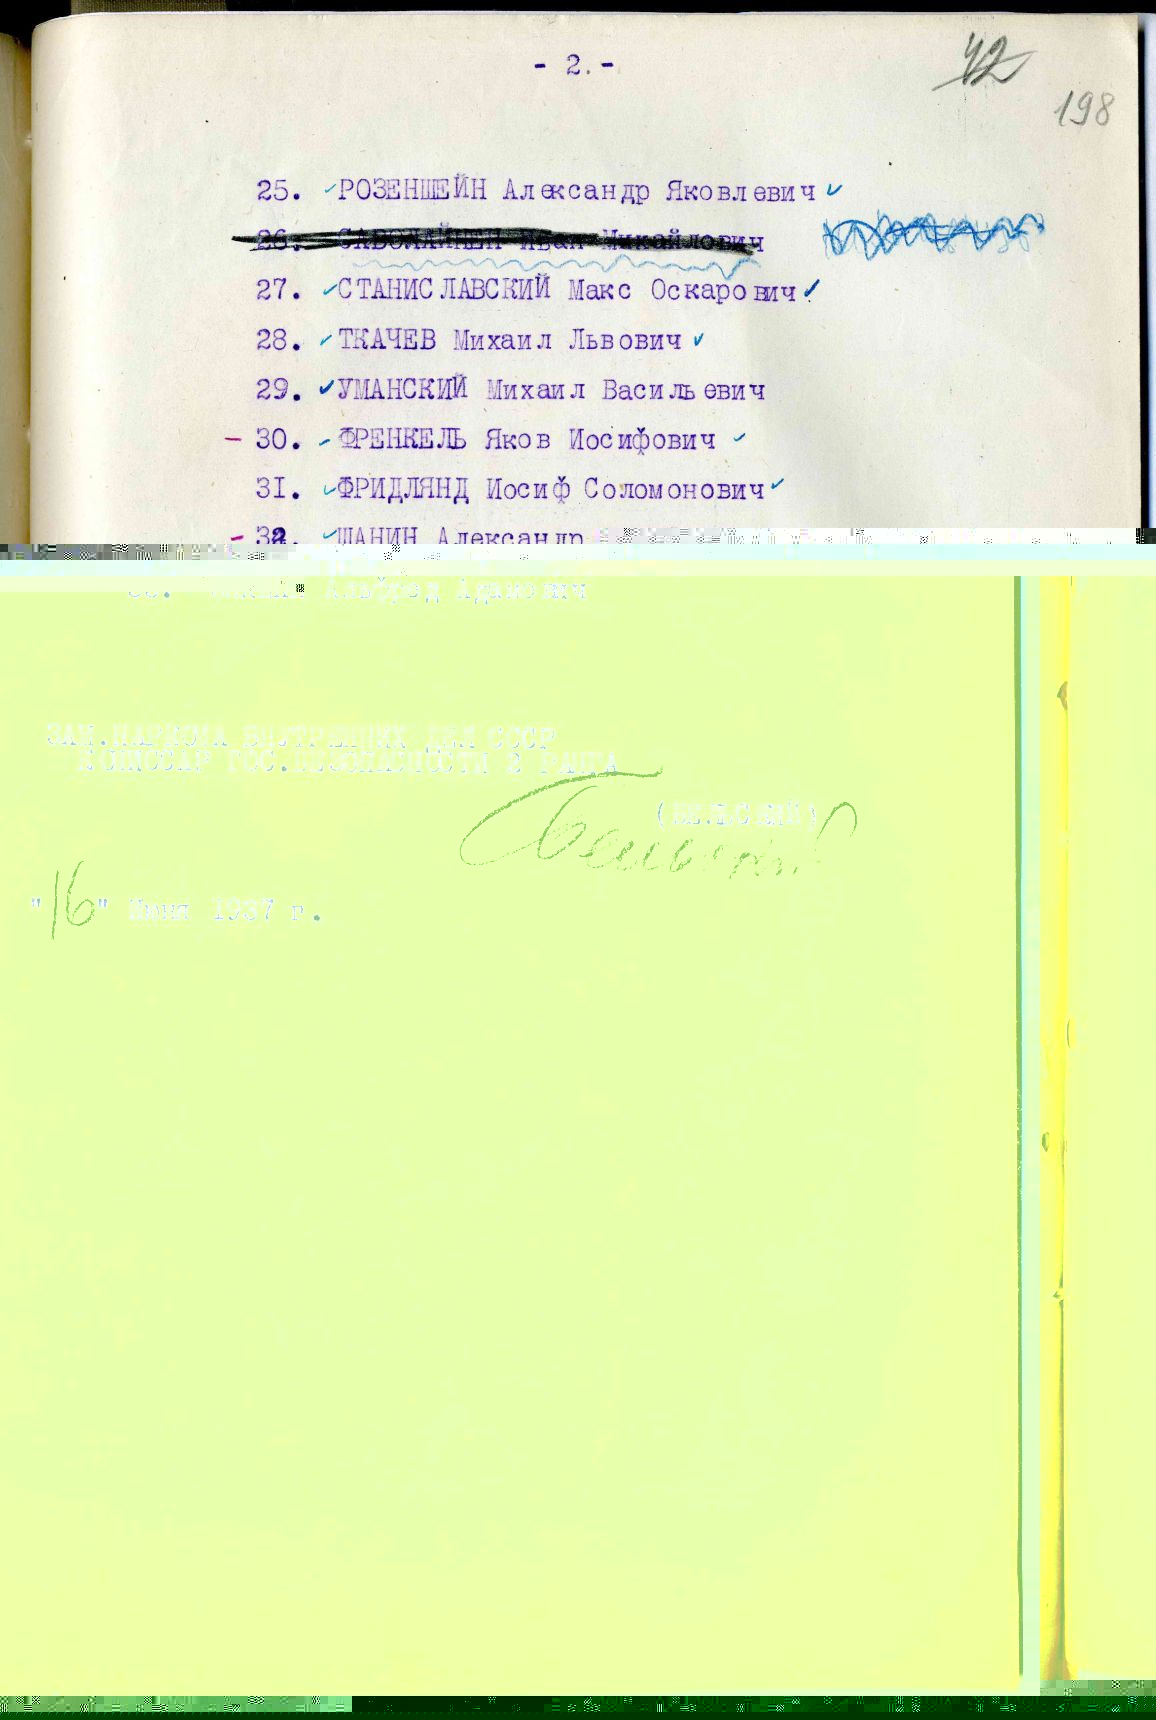 - 2. -
42
198
25. РОЗЕНШЕЙН Александр Яковлевич
26. САВОЛАЙНЕН Иван Михайлович
27. СТАНИСЛАВСКИЙ Макс Оскарович
28. ТКАЧЕВ Михаил Львович
29. УМАНСКИЙ Михаил Васильевич
- 30. ФРЕНКЕЛЬ Яков Иосифович
31. ФРИДЛЯНД Иосиф Соломонович
- 32. ШАНИН Александр
Альфред Адамович
ЗАМ.НАРКОМА ВНУТРЕННИХ ДЕЛ СССР
КОМИССАР ГОС.БЕЗОПАСНОСТИ 2 РАНГА
(БЕЛЬСКИЙ)
"16" Июня 1937 г.